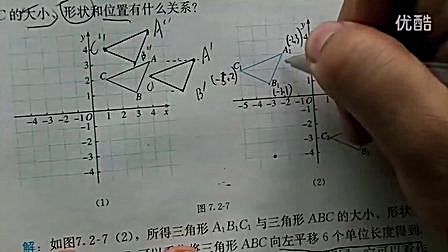 C的大小、形状和位置有什么关系?
优酷
y A'' y (-2,3)
C'' 4 A₁
B'' A A'
C C' (-5,2) C₁
B B' B₁ (-3,1)
-4 -3 -2 -1 O 1 2 3 4 5 x
-5 -4 -3 -2 -1
-1
-2
-3 C₂
-4 B₂
(1) 图 7.2-7 (2)
解: 如图7.2-7(2),所得三角形A₁B₁C₁与三角形ABC的大小、形状
将三角形ABC向左平移6个单位长度得到